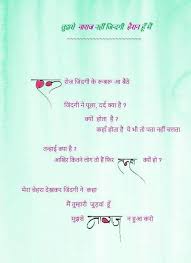 तुझसे नाराज नहीं जिन्दगी हैरान हूँ मैं
एक रोज जिंदगी के रूबरू आ बैठे
जिंदगी ने पूछा, दर्द क्या है ?
क्यों होता है ?
कहाँ होता है ये भी तो पता नहीं चलता
तन्हाई क्या है ?
आखिर कितने लोग तो हैं फिर तन्हा क्यों हो ?
मेरा चेहरा देखकर जिंदगी ने कहा
मैं तुम्हारी जुड़वां हूँ
मुझसे नाराज न हुआ करो